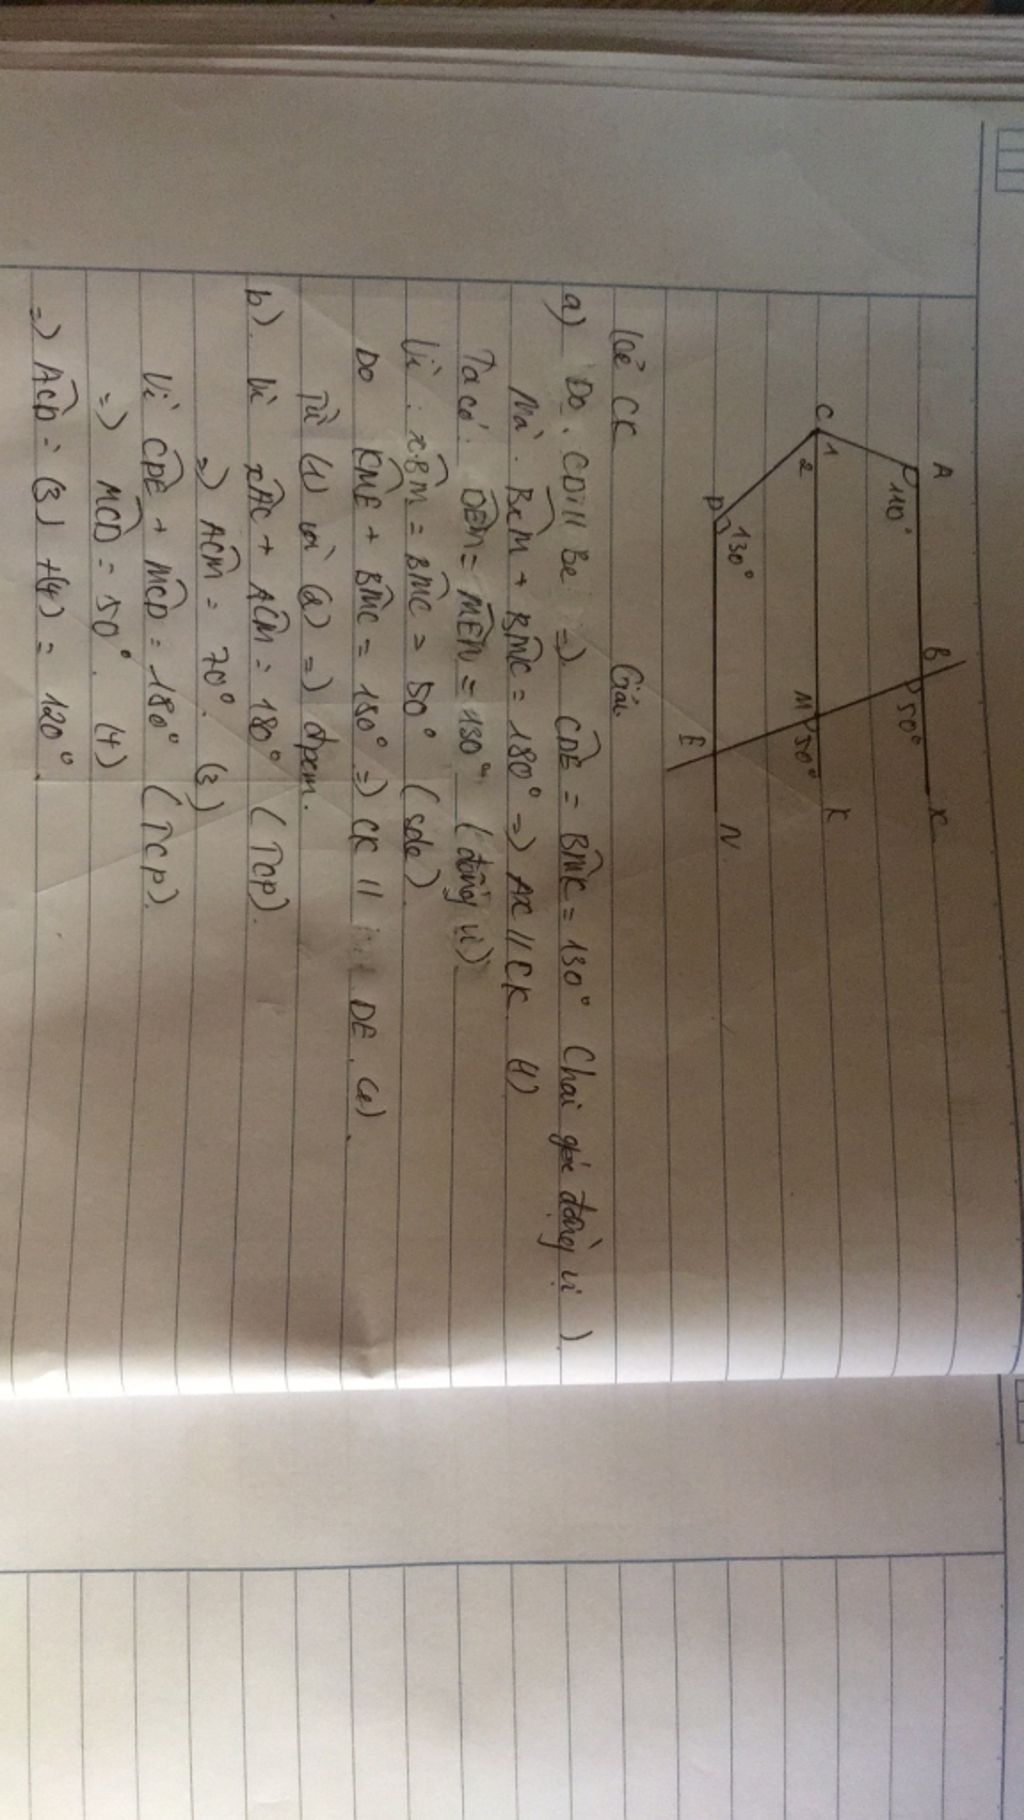 A
B
x
110°
50°
C
1
2
M
50°
K
D
130°
E
N
Giải
Kẻ CK
a) Do CD // BE => CDE = BMK = 130° (hai góc đồng vị)
Mà BCM + BMC = 180° => Ax // CK (1)
Ta có: DEM = MEN = 130° (đồng vị)
Vì: xBM = BMC = 50° (sole)
Do KME + BMC = 180° => CK // DE (2).
Từ (1) và (2) => đpcm.
b). Vì xAC + ACM = 180° (TCP).
=> ACM = 70°. (3)
Vì CDE + MCD = 180° (TCP).
=> MCD = 50°. (4)
=> ACD = (3) + (4) = 120°.